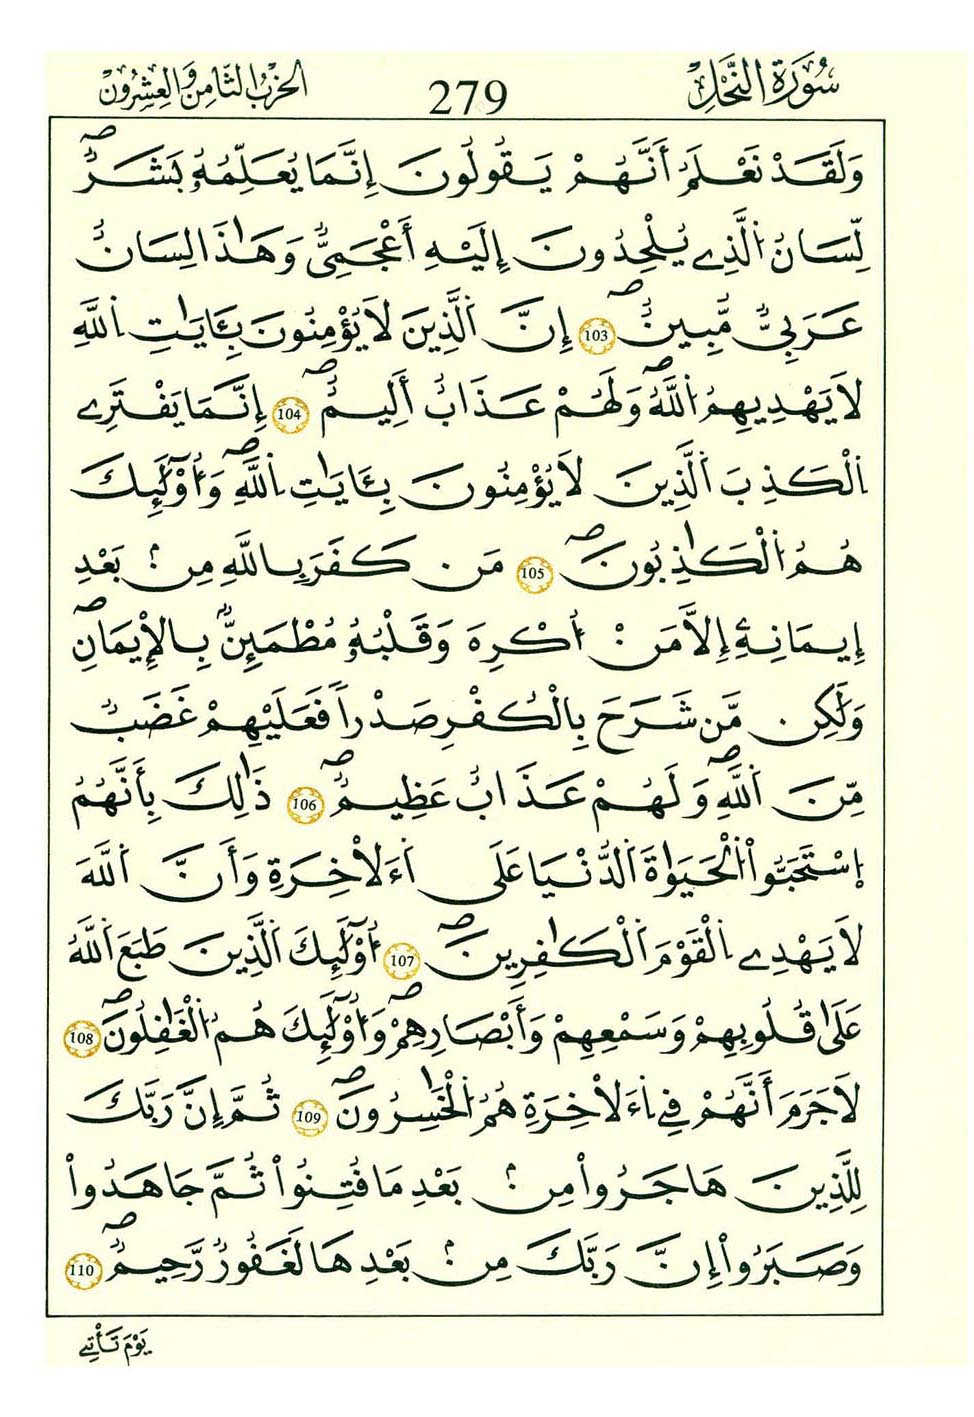 سُورَةُ النَّحْلِ 279 الحِزْبُ الثَّامِنُ وَالعِشْرُونَ
وَلَقَدْ نَعْلَمُ أَنَّهُمْ يَقُولُونَ إِنَّمَا يُعَلِّمُهُۥ بَشَرٌۖ
لِّسَانُ اُ۬لَّذِے يُلْحِدُونَ إِلَيْهِ أَعْجَمِيٌّ وَهَٰذَا لِسَانٌ
عَرَبِيٌّ مُّبِينٌۖ 103 إِنَّ اَ۬لَّذِينَ لَا يُؤْمِنُونَ بِـَٔايَٰتِ اِ۬للَّهِ
لَا يَهْدِيهِمُ اُ۬للَّهُۖ وَلَهُمْ عَذَابٌ أَلِيمٌۖ 104 إِنَّمَا يَفْتَرِے
اِ۬لْكَذِبَ اَ۬لَّذِينَ لَا يُؤْمِنُونَ بِـَٔايَٰتِ اِ۬للَّهِۖ وَأُوْلَٰٓئِكَ
هُمُ اُ۬لْكَٰذِبُونَۖ 105 مَن كَفَرَ بِاللَّهِ مِنۢ بَعْدِ
إِيمَانِهِۦٓ إِلَّا مَنُ ا۟كْرِهَ وَقَلْبُهُۥ مُطْمَئِنٌّۢ بِالْإِيمَانِۖ
وَلَٰكِن مَّن شَرَحَ بِالْكُفْرِ صَدْراً فَعَلَيْهِمْ غَضَبٌ
مِّنَ اَ۬للَّهِۖ وَلَهُمْ عَذَابٌ عَظِيمٌۖ 106 ذَٰلِكَ بِأَنَّهُمُ
اُ۪سْتَحَبُّواْ اُ۬لْحَيَوٰةَ اَ۬لدُّنْيَا عَلَى اَ۬ءَلْأخِرَةِ وَأَنَّ اَ۬للَّهَ
لَا يَهْدِے اِ۬لْقَوْمَ اَ۬لْكَٰفِرِينَۖ 107 أُوْلَٰٓئِكَ اَ۬لَّذِينَ طَبَعَ اَ۬للَّهُ
عَلَىٰ قُلُوبِهِمْ وَسَمْعِهِمْ وَأَبْصَارِهِمْۖ وَأُوْلَٰٓئِكَ هُمُ اُ۬لْغَٰفِلُونَۖ 108
لَا جَرَمَ أَنَّهُمْ فِي اِ۬ءَلْأخِرَةِ هُمُ اُ۬لْخَٰسِرُونَۖ 109 ثُمَّ إِنَّ رَبَّكَ
لِلَّذِينَ هَاجَرُواْ مِنۢ بَعْدِ مَا فُتِنُواْ ثُمَّ جَاهَدُواْ
وَصَبَرُواْ إِنَّ رَبَّكَ مِنۢ بَعْدِهَا لَغَفُورٌ رَّحِيمٌۖ 110
يَوْمَ تَأْتِے